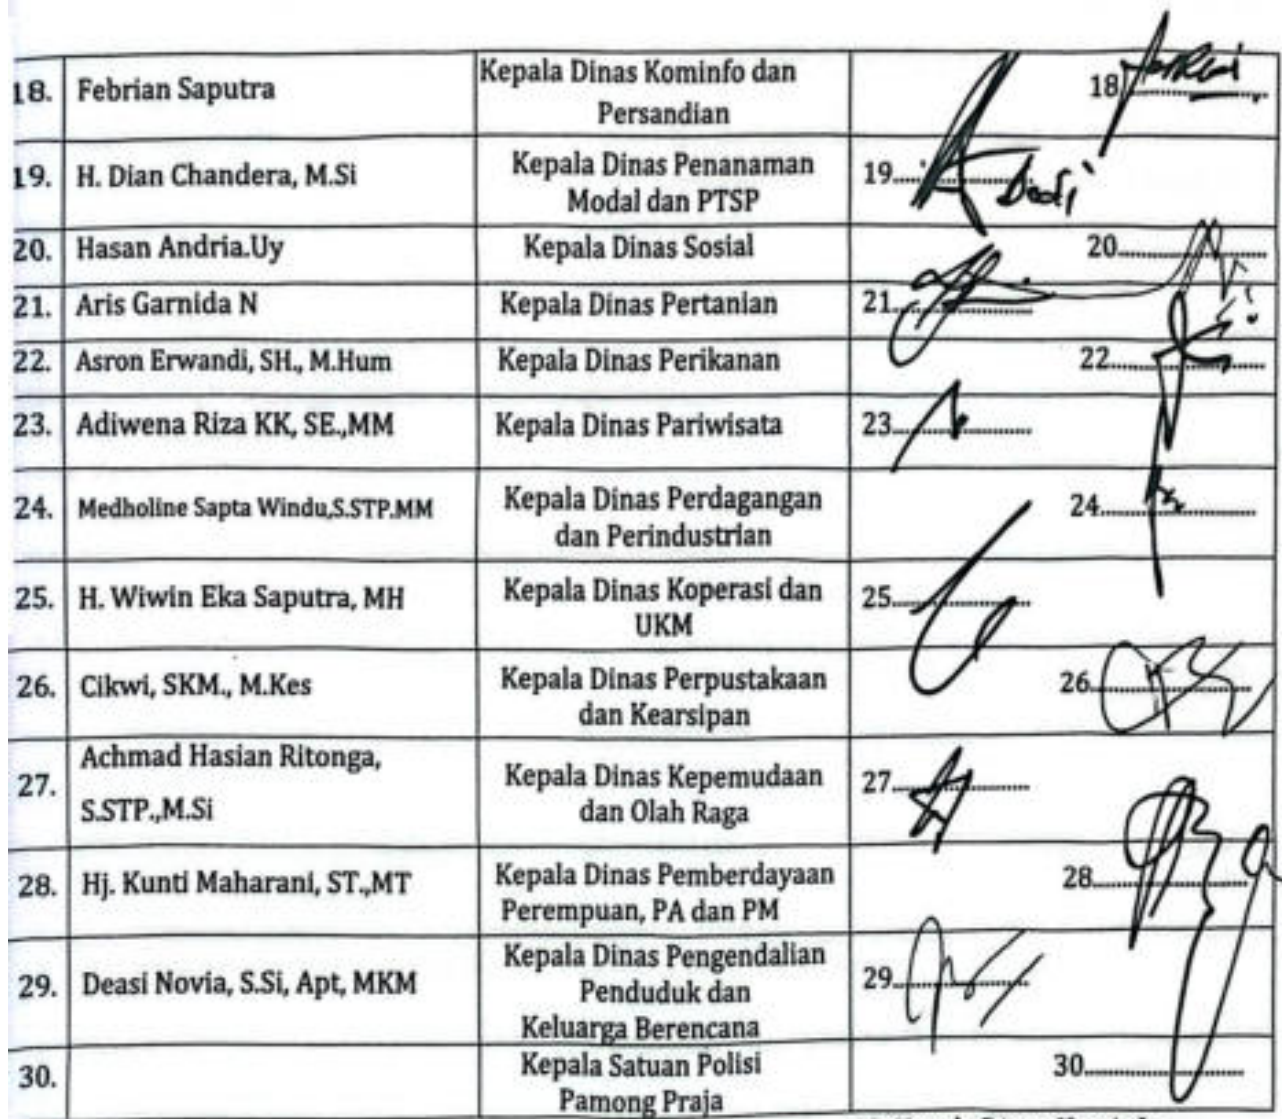 18. Febrian Saputra Kepala Dinas Kominfo dan 18
Persandian
19. H. Dian Chandera, M.Si Kepala Dinas Penanaman 19
Modal dan PTSP
20. Hasan Andria.Uy Kepala Dinas Sosial 20
21. Aris Garnida N Kepala Dinas Pertanian 21
22. Asron Erwandi, SH., M.Hum Kepala Dinas Perikanan 22
23. Adiwena Riza KK, SE.,MM Kepala Dinas Pariwisata 23
24. Medholine Sapta Windu,S.STP.MM Kepala Dinas Perdagangan 24
dan Perindustrian
25. H. Wiwin Eka Saputra, MH Kepala Dinas Koperasi dan 25
UKM
26. Cikwi, SKM., M.Kes Kepala Dinas Perpustakaan 26
dan Kearsipan
27. Achmad Hasian Ritonga, Kepala Dinas Kepemudaan 27
S.STP.,M.Si dan Olah Raga
28. Hj. Kunti Maharani, ST.,MT Kepala Dinas Pemberdayaan 28
Perempuan, PA dan PM
29. Deasi Novia, S.Si, Apt, MKM Kepala Dinas Pengendalian 29
Penduduk dan
Keluarga Berencana
30. Kepala Satuan Polisi 30
Pamong Praja